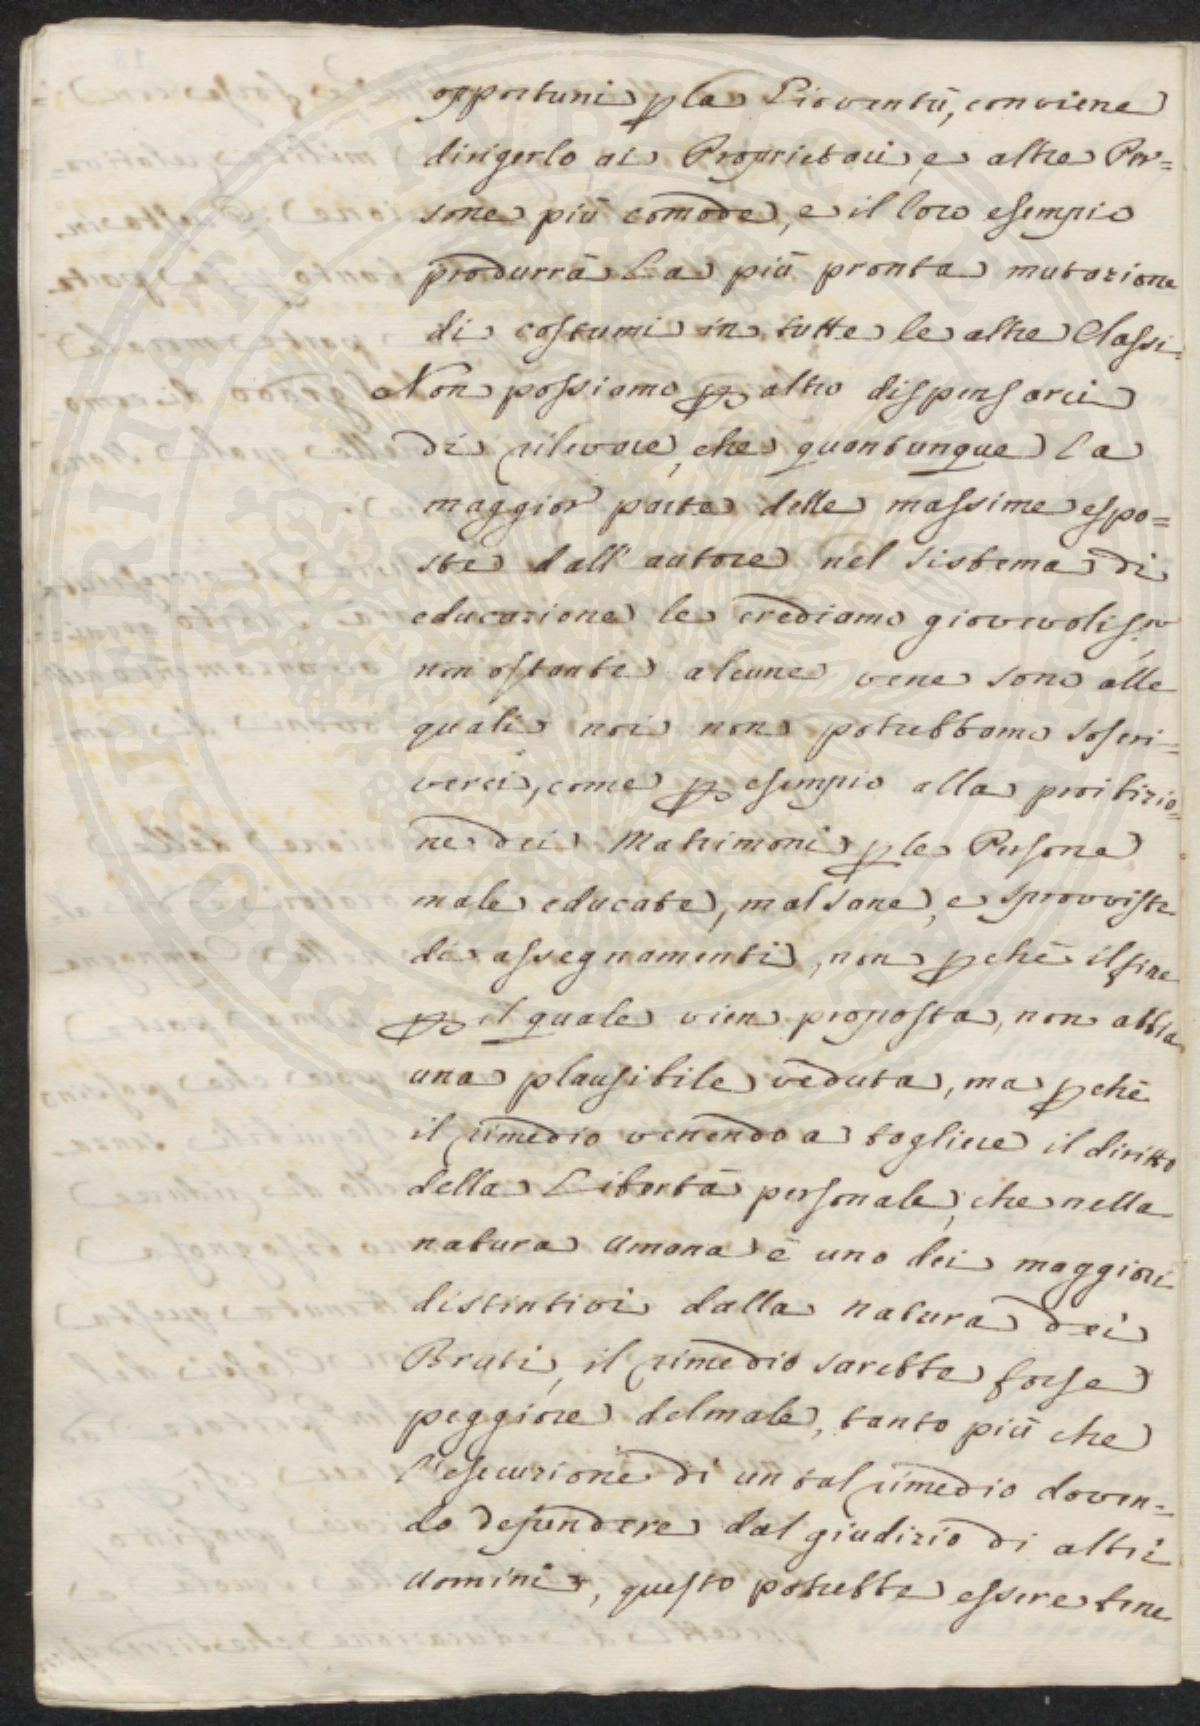 opportuni p la Gioventù, conviene
dirigerlo ai Proprietari, e altre Per=
sone più comode, e il loro esempio
produrrà la più pronta mutazione
di costumi in tutte le altre Classi.
Non possiamo p altro dispensarci
di rilevare, che quantunque la
maggior parte delle massime espo=
ste dall'autore nel sistema di
educazione le crediamo giovevoliss.
non ostante alcune vene sono alle
quali noi non potrebbamo soscri=
verci, come p esempio alla proibizio=
ne dei Matrimoni p le Persone
male educate, mal sane, e sprovviste
di assegnamenti, non pchè il fine
p il quale vien proposta, non abbia
una plausibile veduta, ma pchè
il rimedio venendo a togliere il diritto
della Libertà personale, che nella
natura umana è uno dei maggiori
distintivi dalla natura dei
Bruti, il rimedio sarebbe forse
peggiore del male, tanto più che
l'esecuzione di un tal rimedio doven=
do desundere dal giudizio di altri
uomini, questo potrebbe essere bene
PROSPERITATI PUBLICAE AUGENDAE